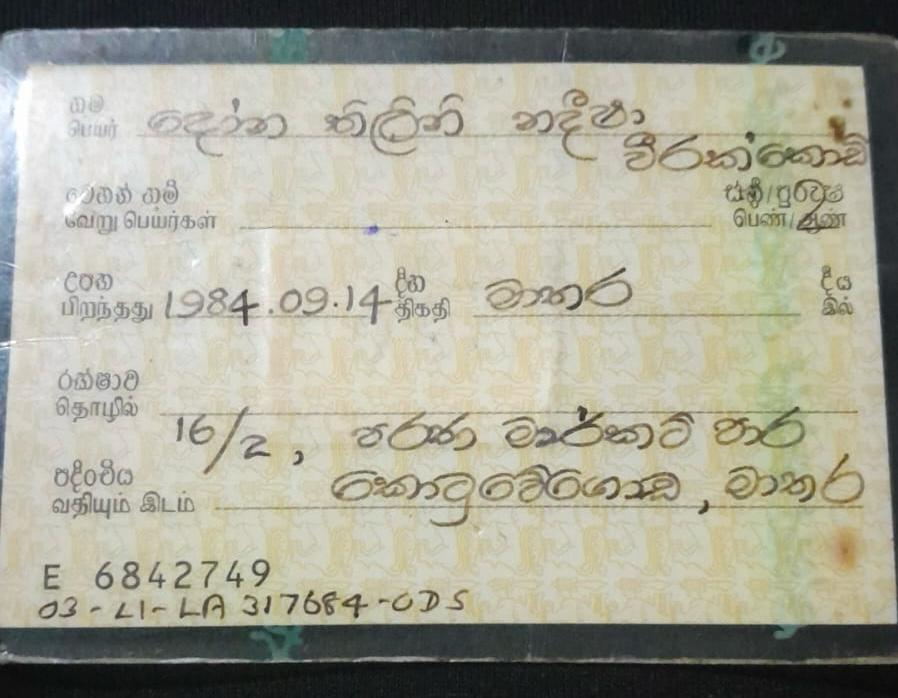 නම දොන තිලිනි නදීෂා
பெயர் වීරක්කොඩි
වෙනත් නම් ස්ත්‍රී/පුරුෂ
வேறு பெயர்கள் பெண்/ஆண்
උපන් 1984.09.14 දින මාතර දීය
பிறந்தது திகதி இல்
රක්ෂාව
தொழில்
16/2, පරණ මාර්කට් පාර
පදිංචිය කොටුවේගොඩ, මාතර
வதியும் இடம்
E 6842749
03-LI-LA 317684-ODS